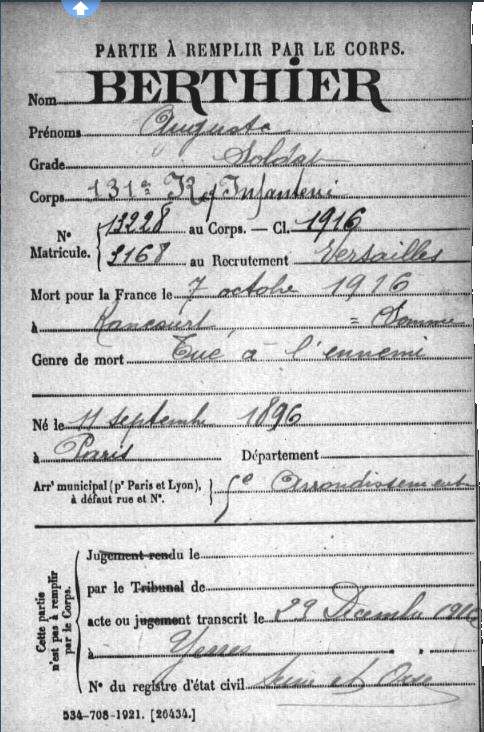 PARTIE À REMPLIR PAR LE CORPS.
Nom BERTHIER
Prénoms Auguste
Grade Soldat
Corps 131e Rg Infanterie
N° Matricule. { 13228 au Corps. — Cl. 1916
2168 au Recrutement Versailles
Mort pour la France le 7 octobre 1916
à Rancourt, = Somme
Genre de mort Tué à l'ennemi
Né le 11 septembre 1896
à Paris Département
Arrt municipal (pr Paris et Lyon), à défaut rue et N°. } 5e Arrondissement
Cette partie n'est pas à remplir par le Corps.
Jugement rendu le
par le Tribunal de
acte ou jugement transcrit le 29 Décembre
à Yerres
N° du registre d'état civil Seine et Oise
534-708-1921. [26434.]